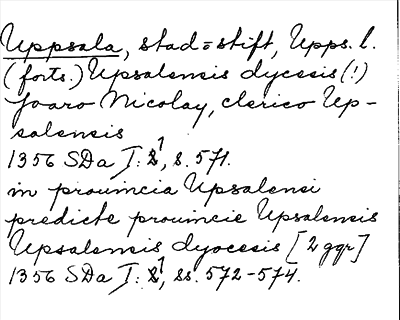 Uppsala, stad = stift, Upps. l.
(forts.) Upsalensis dycesis (!)
Joaro Nicolay, clerico Up-
salensis
1356 SDa I: 1, s. 571.
in prouincia Upsalensi
predicte prouincie Upsalensis
Upsalensis dyocesis [2 ggr]
1356 SDa I: 1, ss. 572-574.